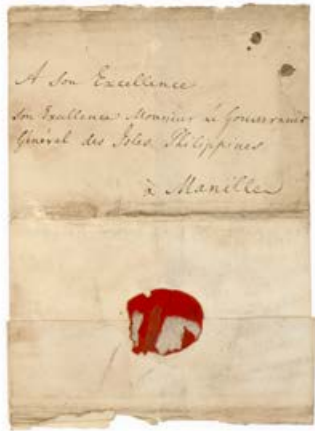 A Son Excellence
Son Excellence Monsieur Le Gouverneur
Général des Isles Philippines
à Manille